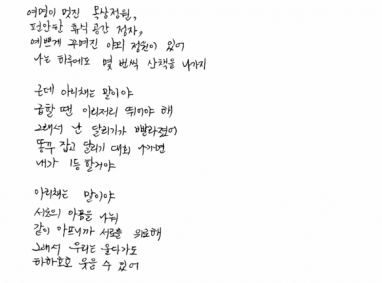 여명이 멋진 옥상정원,
편안한 휴식 공간 정자,
예쁘게 꾸며진 야외 정원이 있어
나는 하루에도 몇 번씩 산책을 나가지
근데 아리채는 말이야
급할 땐 이리저리 뛰어야 해
그래서 난 달리기가 빨라졌어
똥꾸 잡고 달리기 대회 나가면
내가 1등 할거야
아리채는 말이야
서로의 아픔을 나눠
같이 아프니까 서로를 위로해
그래서 우리는 울다가도
하하호호 웃을 수 있어